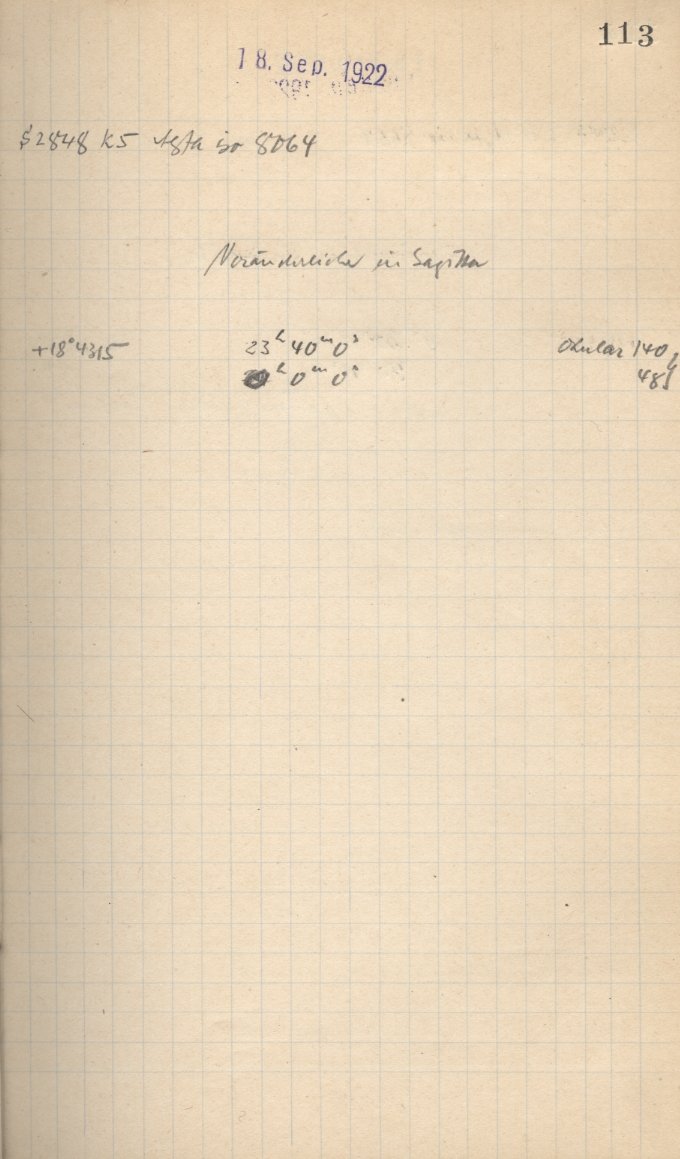 113
18. Sep. 1922
$2848 K5 Agfa iso 8064
Veränderlicher in Sagitta
+18°4315 23h 40m 0s Okular 140
h 0m 0s 48